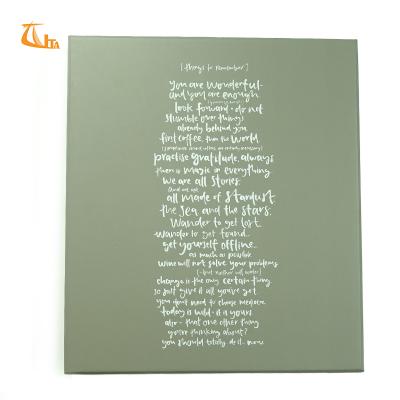 TA
[things to remember]
you are wonderful
and you are enough
look forward - do not
stumble over things
already behind you
first coffee, then the world
practise gratitude, always
there is magic in everything
we are all stories
and we are
all made of stardust
the sea and the stars.
Wander to get lost
wander to get found..
get yourself offline..
as much as possible
wine will not solve your problems
(-but neither will water)
change is the only certain thing
so just give it all you've got
you don't need to choose mediocre
today is wild - it is yours
also - that one other thing
you're thinking about?
you should totally do it.. now